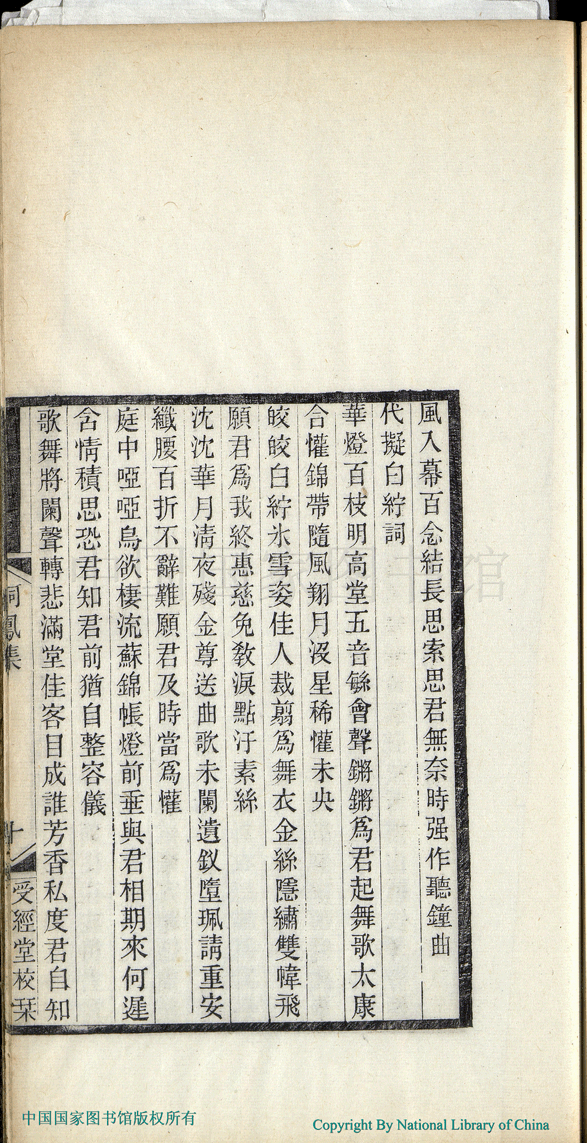 風入幕百念結長思索思君無奈時强作聽鐘曲
代擬白紵詞
華燈百枝明高堂五音緐會聲鏘鏘爲君起舞歌太康
合懽錦帶隨風翔月沒星稀懽未央
皎皎白紵氷雪姿佳人裁翦爲舞衣金絲隱繡雙幃飛
願君爲我終惠慈免敎淚點汙素絲
沈沈華月淸夜殘金尊送曲歌未闌遺釵墮珮請重安
纖腰百折不辭難願君及時當爲懽
庭中啞啞烏欲棲流蘇錦帳燈前垂與君相期來何遲
含情積思恐君知君前猶自整容儀
歌舞將闌聲轉悲滿堂佳客目成誰芳香私度君自知
鳳集
受經堂校栞
中国国家图书馆版权所有
Copyright By National Library of China